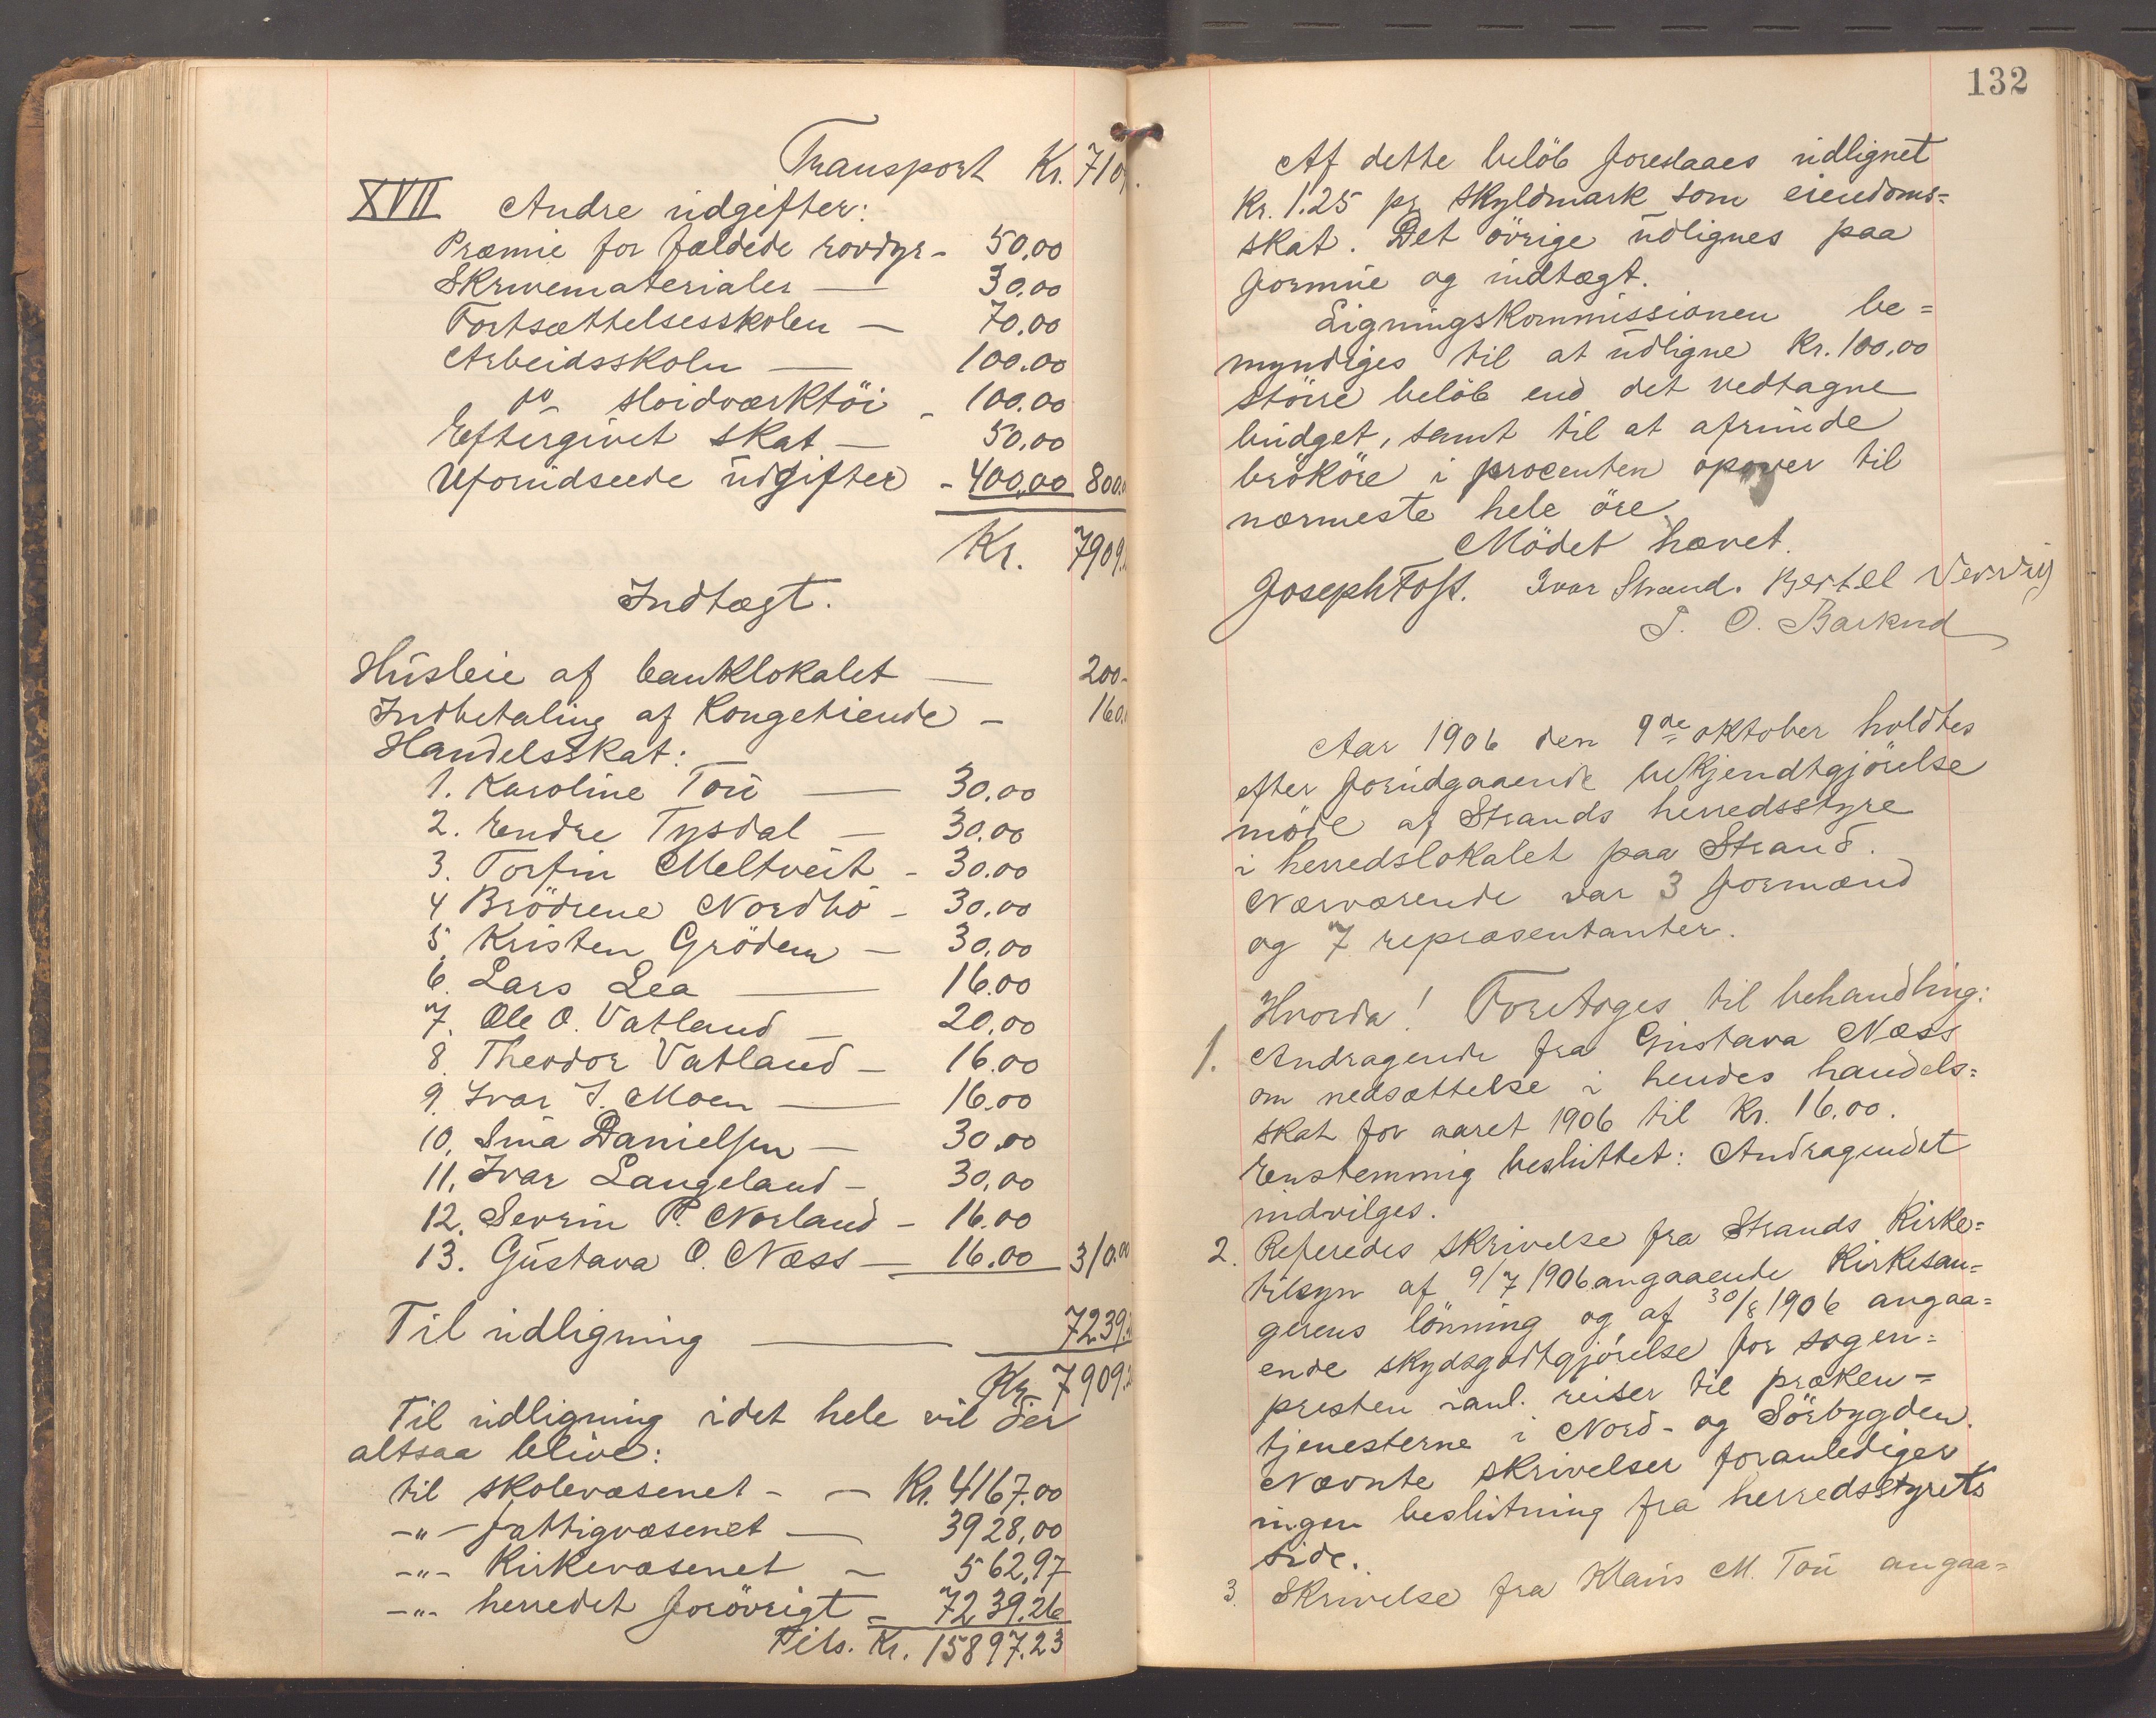 Transport Kr. 7109.
XVII Andre udgifter:
Præmie for fældede rovdyr - 50,00
Skrivematerialer — 30,00
Fortsættelsesskolen — 70,00
Arbeidsskolen — 100.00
do sløidværktöi - 100.00
Eftergivet skat — 50,00
Uforudseede udgifter - 400,00 800.
Kr. 7909.
Indtægt.
Husleie af banklokalet — 200-
Indbetaling af Kongetiende - 160.
Handelsskat:
1. Karoline Tou — 30,00
2. Endre Tysdal — 30,00
3. Torfin Meltveit - 30,00
4 Brödrene Nordbö - 30,00
5. Kristen Grödem — 30,00
6. Lars Lea — 16.00
7. Ole O. Vatland — 20,00
8. Theodor Vatland — 16.00
9. Ivar J. Moen — 16.00
10. Sina Danielsen — 30,00
11. Ivar Langeland - 30,00
12. Sevrin P. Norland - 16.00
13. Gustava O. Næss — 16.00 310.00
Til udligning — 7239.
Kr 7909.
Til udligning idet hele vil der
altsaa blive:
til skolevæsenet - — Kr. 4167.00
-"- fattigvæsenet — 3928,00
-"- Kirkevæsenet — 562,97
-"- herredet forövrigt - 7239.26
Tils. Kr. 15897.23
132
Af dette belöb foreslaaes udlignet
Kr. 1.25 pr skyldmark som eiendoms=
skat. Det övrige udlignes paa
formue og indtægt.
Ligningskommissionen be=
myndiges til at udligne Kr. 100,00
större belöb end det vedtagne
budget, samt til at afrunde
brököre i procenten opover til
nærmeste hele öre.
Mödet hævet.
Joseph Foss. Ivar Strand. Bertel
O. Barkved
Aar 1906 den 9de oktober holdtes
efter forudgaaende bekjendtgjörelse
möde af Strands herredsstyre
i herredslokalet paa Strand.
Nærværende var 3 formænd
og 7 repræsentanter.
Hvorda! Foretoges til behandling:
1. Andragende fra Gustava Næss
om nedsættelse i hendes handels=
skat for aaret 1906 til Kr. 16.00.
Enstemmig besluttet: Andragendet
indvilges.
2. Referedes skrivelse fra Strands Kirke=
tilsyn af 9/7 1906 angaaende Kirkesan=
gerens lönning og af 30/8 1906 angaa=
ende skydsgodtgjörelse for sogne=
presten i anl. reiser til præken=
tjenesterne i Nord- og Sörbygden.
Nævnte skrivelser foranlediger
ingen beslutning fra herredsstyrets
side.
3. Skrivelse fra Klaus M. Tou angaa=